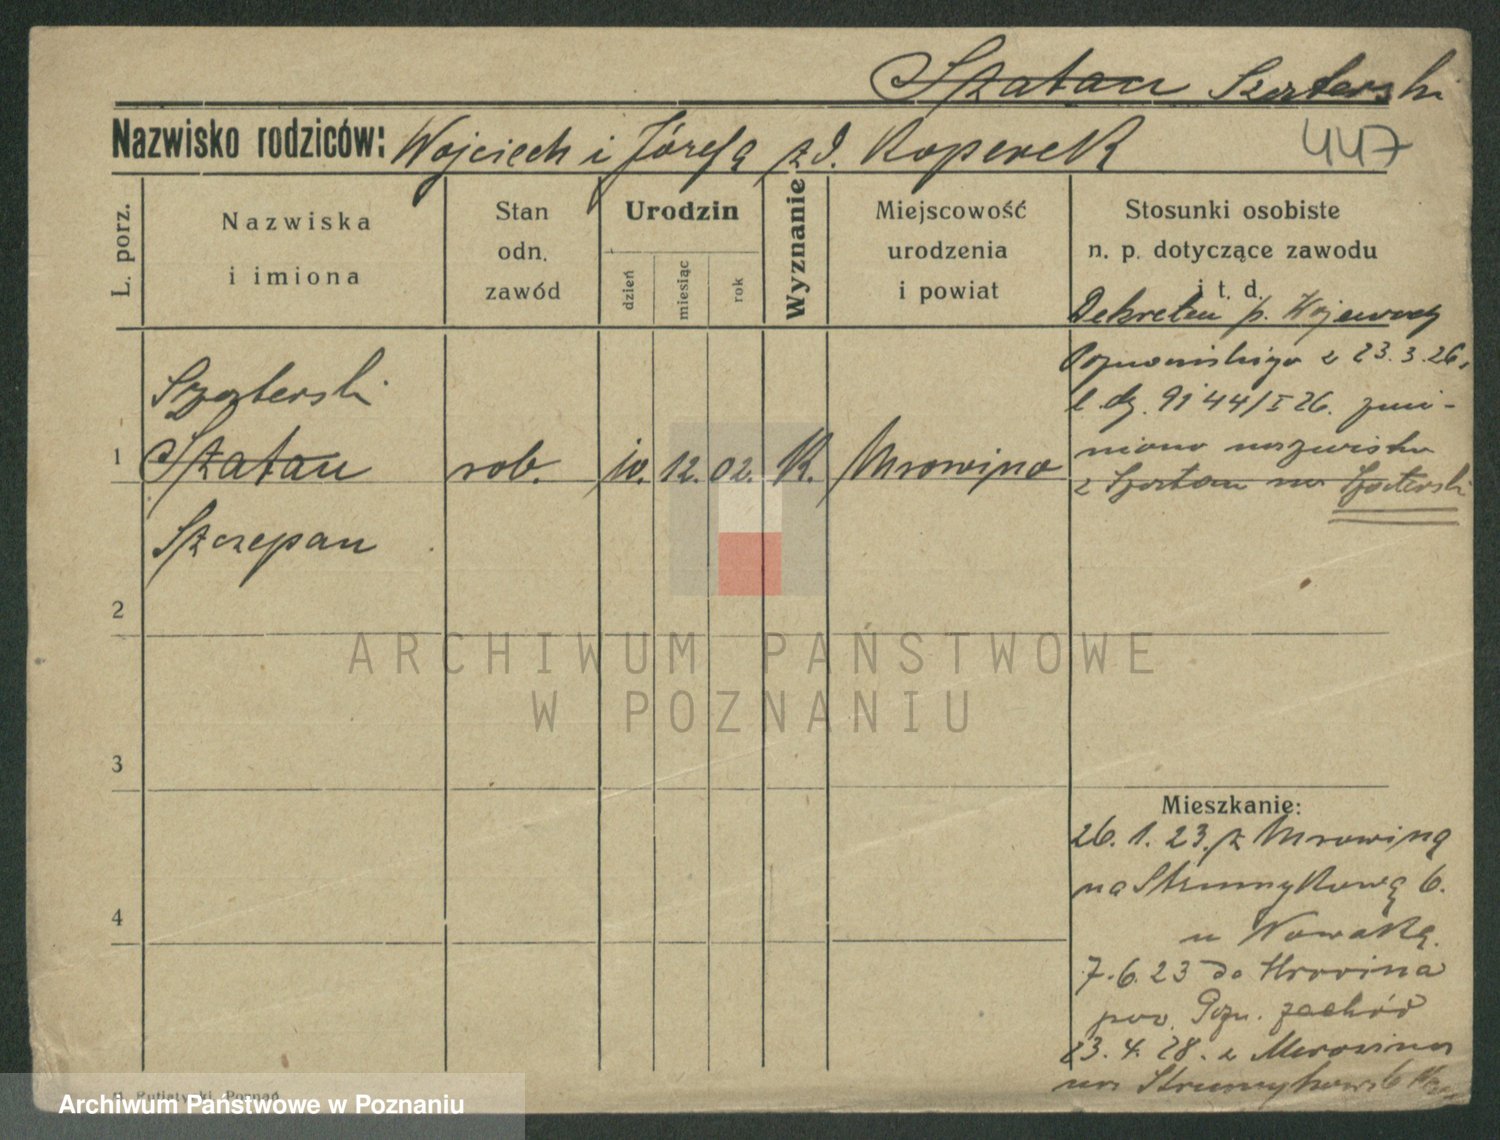 Szatan Szaterski
Nazwisko rodziców: Wojciech i Józefa zd. Koperek
447
L. porz.
Nazwiska
i imiona
Stan
odn.
zawód
Urodzin
dzień
miesiąc
rok
Wyznanie
Miejscowość
urodzenia
i powiat
Stosunki osobiste
n. p. dotyczące zawodu
i t. d.
Dekretem p. Wojewody
Poznańskiego z 23.3.26.
l. dz. 9144/I 26. zmie-
niono nazwisko
z Szatan na Szaterski
Szaterski
1 Szatan rob. 10. 12. 02. K. Mrowino
Szczepan
2
3
4
Mieszkanie:
26. 1. 23. z Mrowina
na Strumykową 6.
u Nowaka.
7. 6. 23 do Mrowina
pow. Pozn. zachód
23. 4. 28. z Mrowina
na Strumykową 6
ARCHIWUM PAŃSTWOWE
W POZNANIU
Archiwum Państwowe w Poznaniu